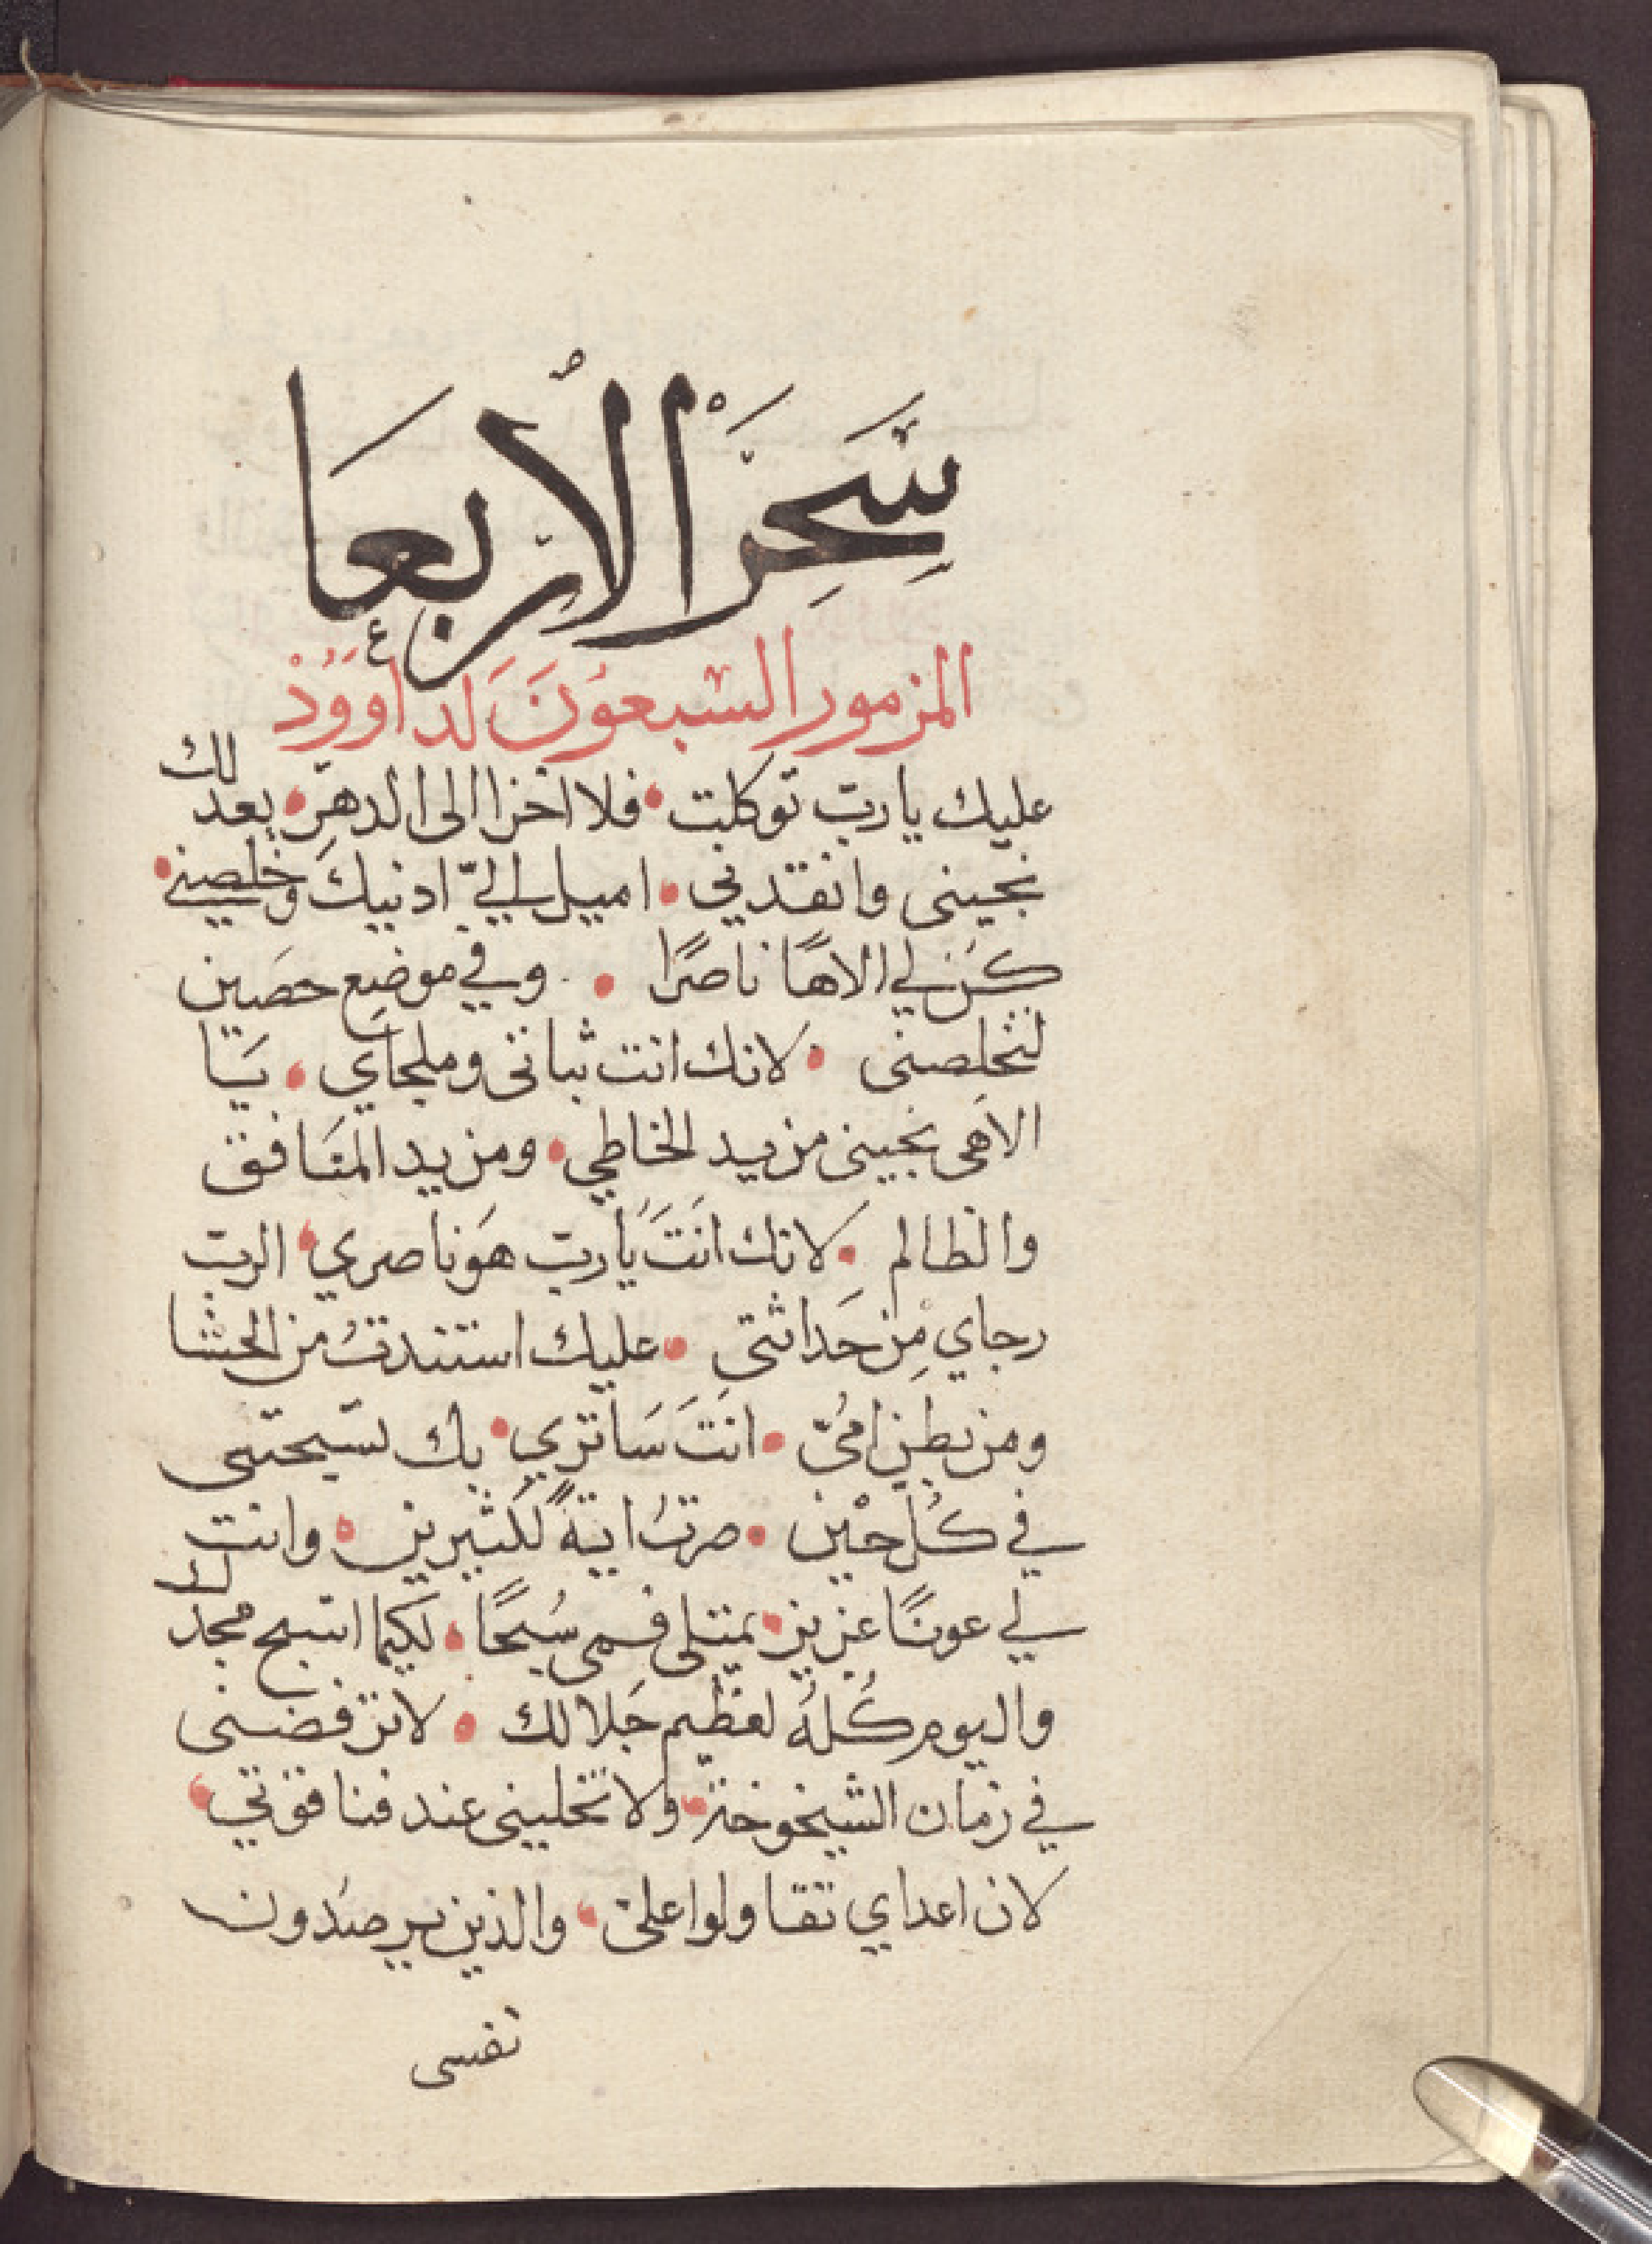 سَحَرْ الأُربعَا
ع
المزمور السبعوُنَ لداوَوُدْ
عليك يارب توكلت • فلا اخزا الى الدهرِ • بعدلك
نجينى وانقدني • اميل اليّ ادنيك وخلصني •
كُن لي الاهًا ناصرًا • وفي موضع حصَين
لتخلصنى • لانك انت ثباتى وملجاي • يَا
الاهى نجينى من يد الخاطي • ومن يد المنَافق
والظالم • لانك انَتَ يَارب هَو ناصري • الرب
رجاي مِن حَداثتى • عليك استندتُ من الحشا
ومن بطن امُيّ • انتَ سَاتري • بك تسَبحتى
في كُل حيْن • صرتُ ايةً لكثيرين • وانت
لي عونًا عزيز • يمتلى فمى سُبحًا • لكيما اسبح مجدك
واليوم كُلهُ لعظيم جَلالك • لا ترفضنى
في زمان الشيخوخة • ولا تخلينى عند فنا قوتي •
لان اعداي تقاولوا على • والذين يرصدون
نفسى